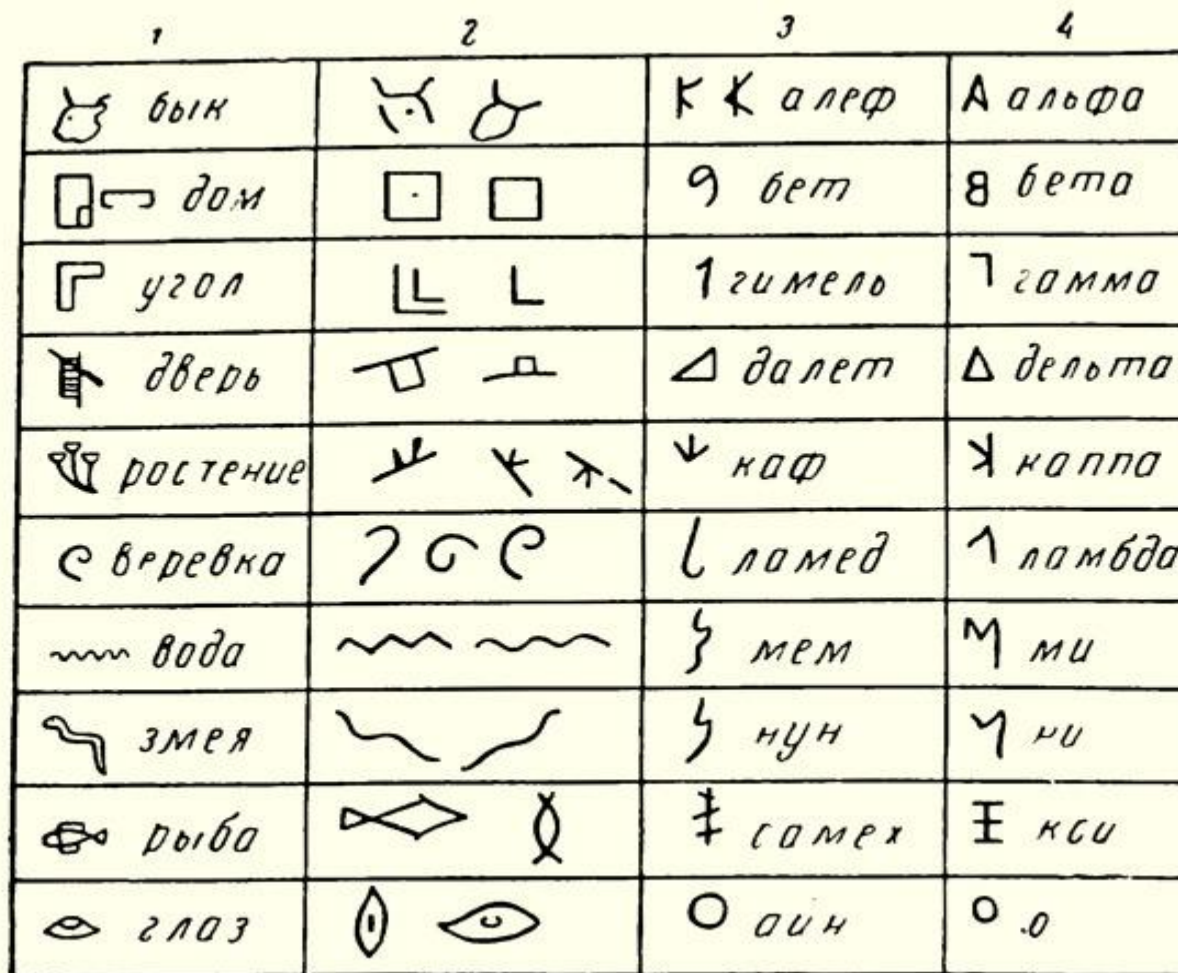 1 2 3 4
бык алеф А альфа
дом бет бета
угол гимель гамма
дверь далет дельта
ростение каф каппа
веревка ламед ламбда
вода мем ми
змея нун ни
рыба самех кси
глаз аин о